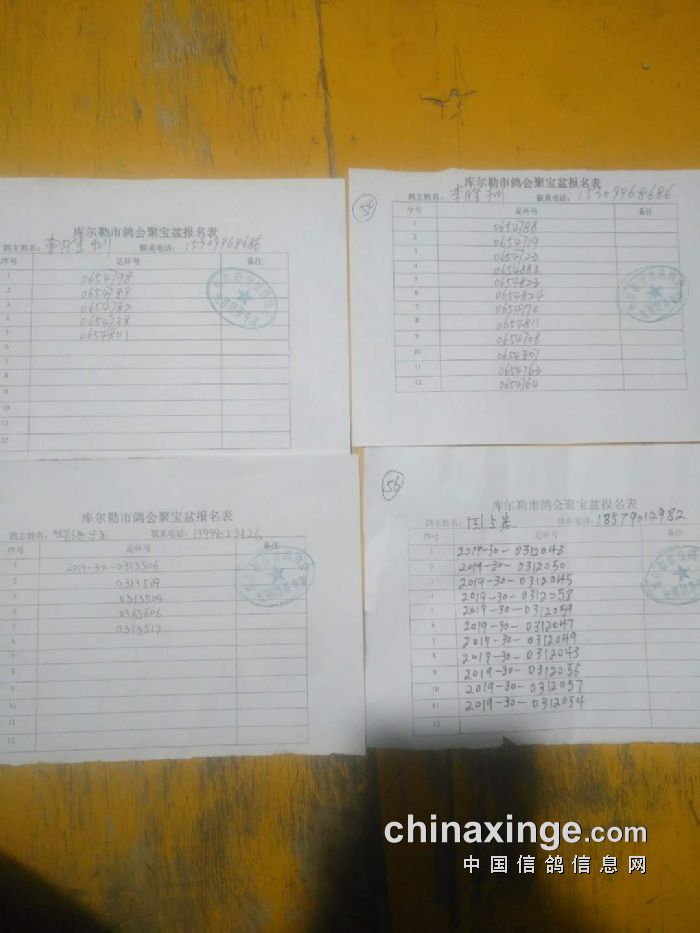 库尔勒市鸽会聚宝盆报名表
鸽主姓名： 联系电话： 15309968686
序号 足环号 备注
1 0654798
2 0654789
3 0654782
4 0654738
5 0654801
6
7
8
9
10
11
12
54
库尔勒市鸽会聚宝盆报名表
鸽主姓名： 联系电话： 15309968686
序号 足环号 备注
1 0654788
2 0654719
3 0654723
4 0654883
5 0654823
6 0654824
7 0654770
8 0654811
9 0654708
10 0654807
11 0654763
12 0654764
库尔勒市鸽会聚宝盆报名表
鸽主姓名： 联系电话：
序号 足环号 备注
1 2019-30-0313506
2 0313509
3 0313504
4 0365606
5 0313517
6
7
8
9
10
11
12
56
库尔勒市鸽会聚宝盆报名表
鸽主姓名： 联系电话： 18579012982
序号 足环号 备注
1 2019-30-0312048
2 2019-30-0312050
3 2019-30-0312045
4 2019-30-0312058
5 2019-30-0312059
6 2019-30-0312047
7 2019-30-0312049
8 2019-30-0312043
9 2019-30-0312056
10 2019-30-0312057
11 2019-30-0312054
12
chinaxinge.com
中国信鸽信息网